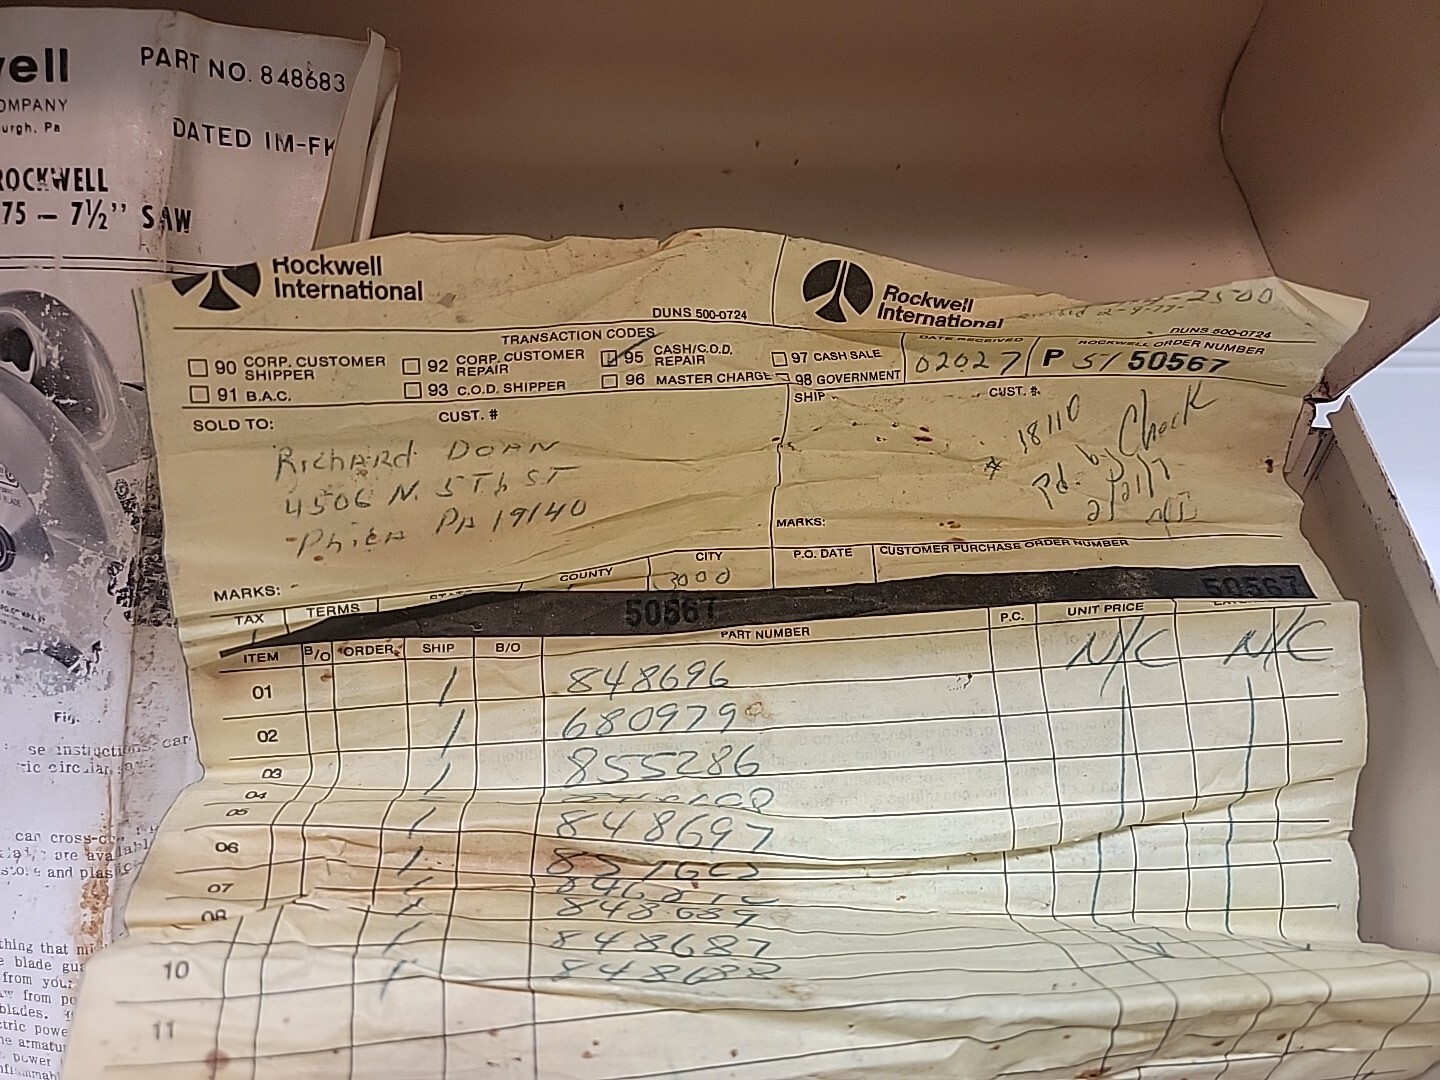 PART NO. 848683
COMPANY
DATED IM-FK
ROCKWELL
75 — 7½" SAW
Rockwell
International
DUNS 500-0724
TRANSACTION CODES
90 CORP. CUSTOMER SHIPPER
92 CORP. CUSTOMER REPAIR
95 CASH/C.O.D. REPAIR
97 CASH SALE
91 B.A.C.
93 C.O.D. SHIPPER
96 MASTER CHARGE
98 GOVERNMENT
Rockwell
International
2500
DUNS 500-0724
DATE RECEIVED
02027
ROCKWELL ORDER NUMBER
P 51 50567
SOLD TO:
CUST. #
Richard Doan
4506 N. 5Th ST
PA 19140
MARKS:
SHIP
CUST. #
* 18110
Pd. by Check
MARKS:
COUNTY
CITY
3000
P.O. DATE
CUSTOMER PURCHASE ORDER NUMBER
TAX
TERMS
50567
50567
ITEM B/O ORDER SHIP B/O PART NUMBER P.C. UNIT PRICE
01 1 848696 N/C N/C
02 1 680979
03 1 855286
04
05 1 848697
06 1
07
08 1 848689
1 848687
10 1 848688
11
Fig.
se instructions car
ric circular
can cross-c
are
and plas
thing that mi
e blade gua
from your
from po
blades.
tric powe
he armatu
power